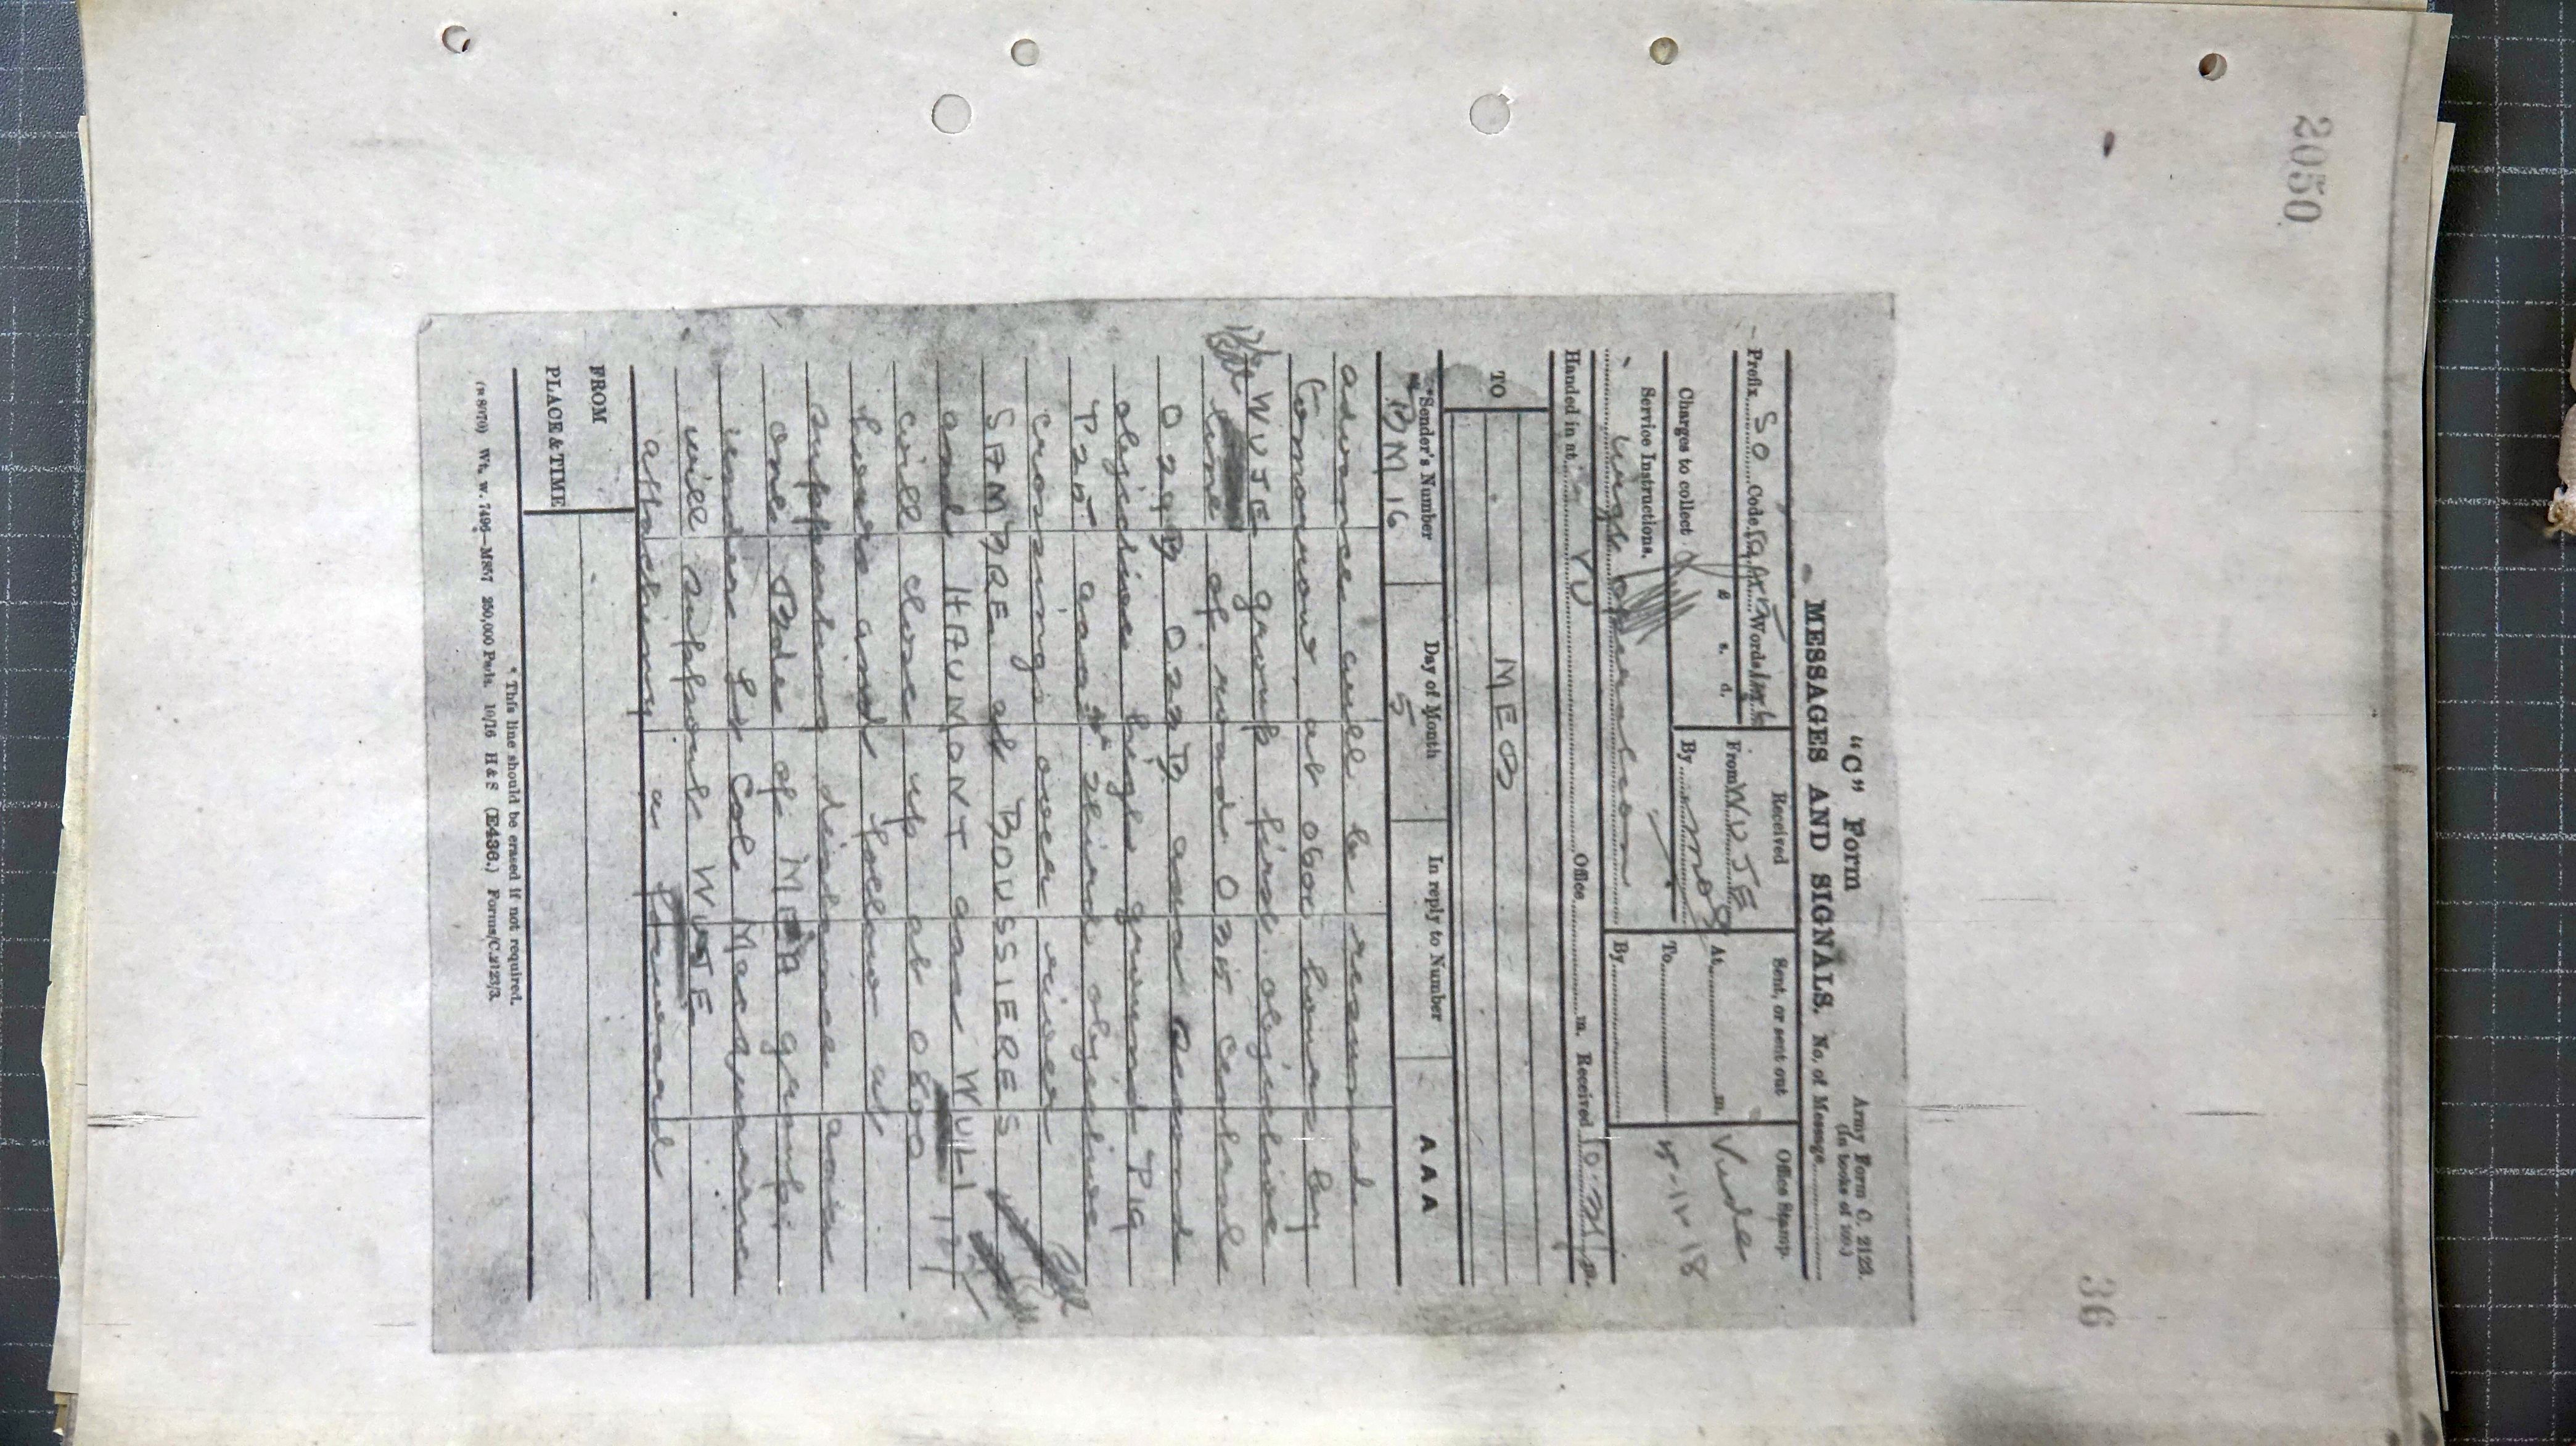 2050
36
"C" Form
Army Form C. 2123.
(In books of 100.)
MESSAGES AND SIGNALS. No. of Message
Prefix SO Code Words
Received
Sent, or sent out
Office Stamp.
From WUJE
At m.
Charges to collect
By
To
Service Instructions.
By
5-11-18
Handed in at YU Office m. Received
TO MEO
*Sender's Number
Day of Month
In reply to Number
AAA
BM 16
5
advance will be resumed
tomorrow at 0600 hours by
WUJE group first objective
line of road O 25 central
O 29 B O 22 B aaa second
objective high ground P 19
P 25 aaa third objective
crossings over river
SAMBRE at BOUSSIERES
and HAUMONT aaa WULI
will close up at 0800
hours and follow at
supporting distance aaa
one Bde of group
under Lt Col Macquarie
will support WUJE
attaching a forward
FROM
PLACE & TIME
* This line should be erased if not required.
(R 8070) Wt. w. 7496—M857 250,000 Pads. 10/16 H & S (E436.) Forms/C.2123/3.